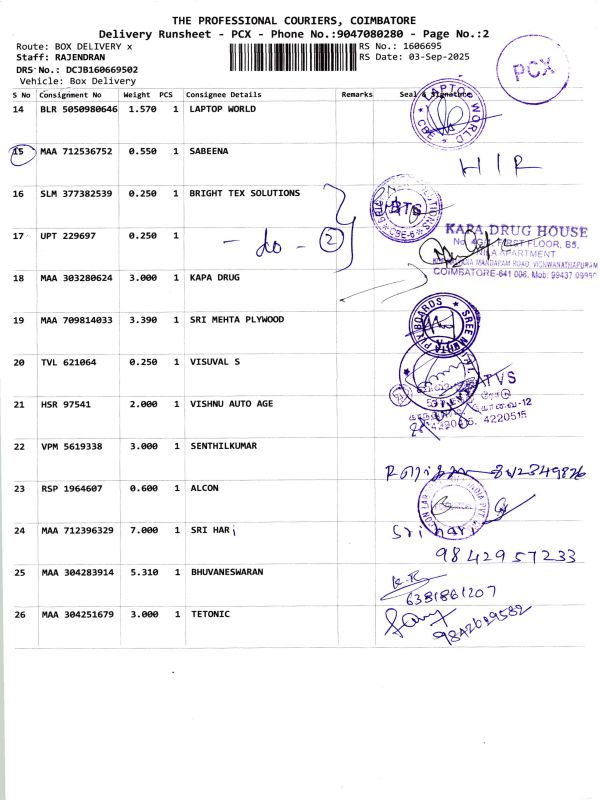 THE PROFESSIONAL COURIERS, COIMBATORE
Delivery Runsheet - PCX - Phone No.:9047080280 - Page No.:2
Route: BOX DELIVERY x
RS No.: 1606695
Staff: RAJENDRAN
RS Date: 03-Sep-2025
DRS No.: DCJB160669502
Vehicle: Box Delivery
PCX
S No Consignment No Weight PCS Consignee Details Remarks Seal & Signature
14 BLR 5050980646 1.570 1 LAPTOP WORLD
LAPTOP WORLD * CBE *
15 MAA 712536752 0.550 1 SABEENA
HIR
16 SLM 377382539 0.250 1 BRIGHT TEX SOLUTIONS
BTS
CBE-5
17 UPT 229697 0.250 1
- do - 2
KAPA DRUG HOUSE
FIRST FLOOR, B5,
APARTMENT
MANDAPAM ROAD, VISHWANATHAPURAM
COIMBATORE-641 006. Mob: 99437 09950
18 MAA 303280624 3.000 1 KAPA DRUG
19 MAA 709814033 3.390 1 SRI MEHTA PLYWOOD
SREE MEHTA PLY BOARDS
20 TVL 621064 0.250 1 VISUVAL S
TVS
ரோடு
கோவை-12
4220515
21 HSR 97541 2.000 1 VISHNU AUTO AGE
22 VPM 5619338 3.000 1 SENTHILKUMAR
23 RSP 1964607 0.600 1 ALCON
24 MAA 712396329 7.000 1 SRI HARi
Sri hari
9842957233
25 MAA 304283914 5.310 1 BHUVANESWARAN
K.R
6381861207
26 MAA 304251679 3.000 1 TETONIC
9842629582